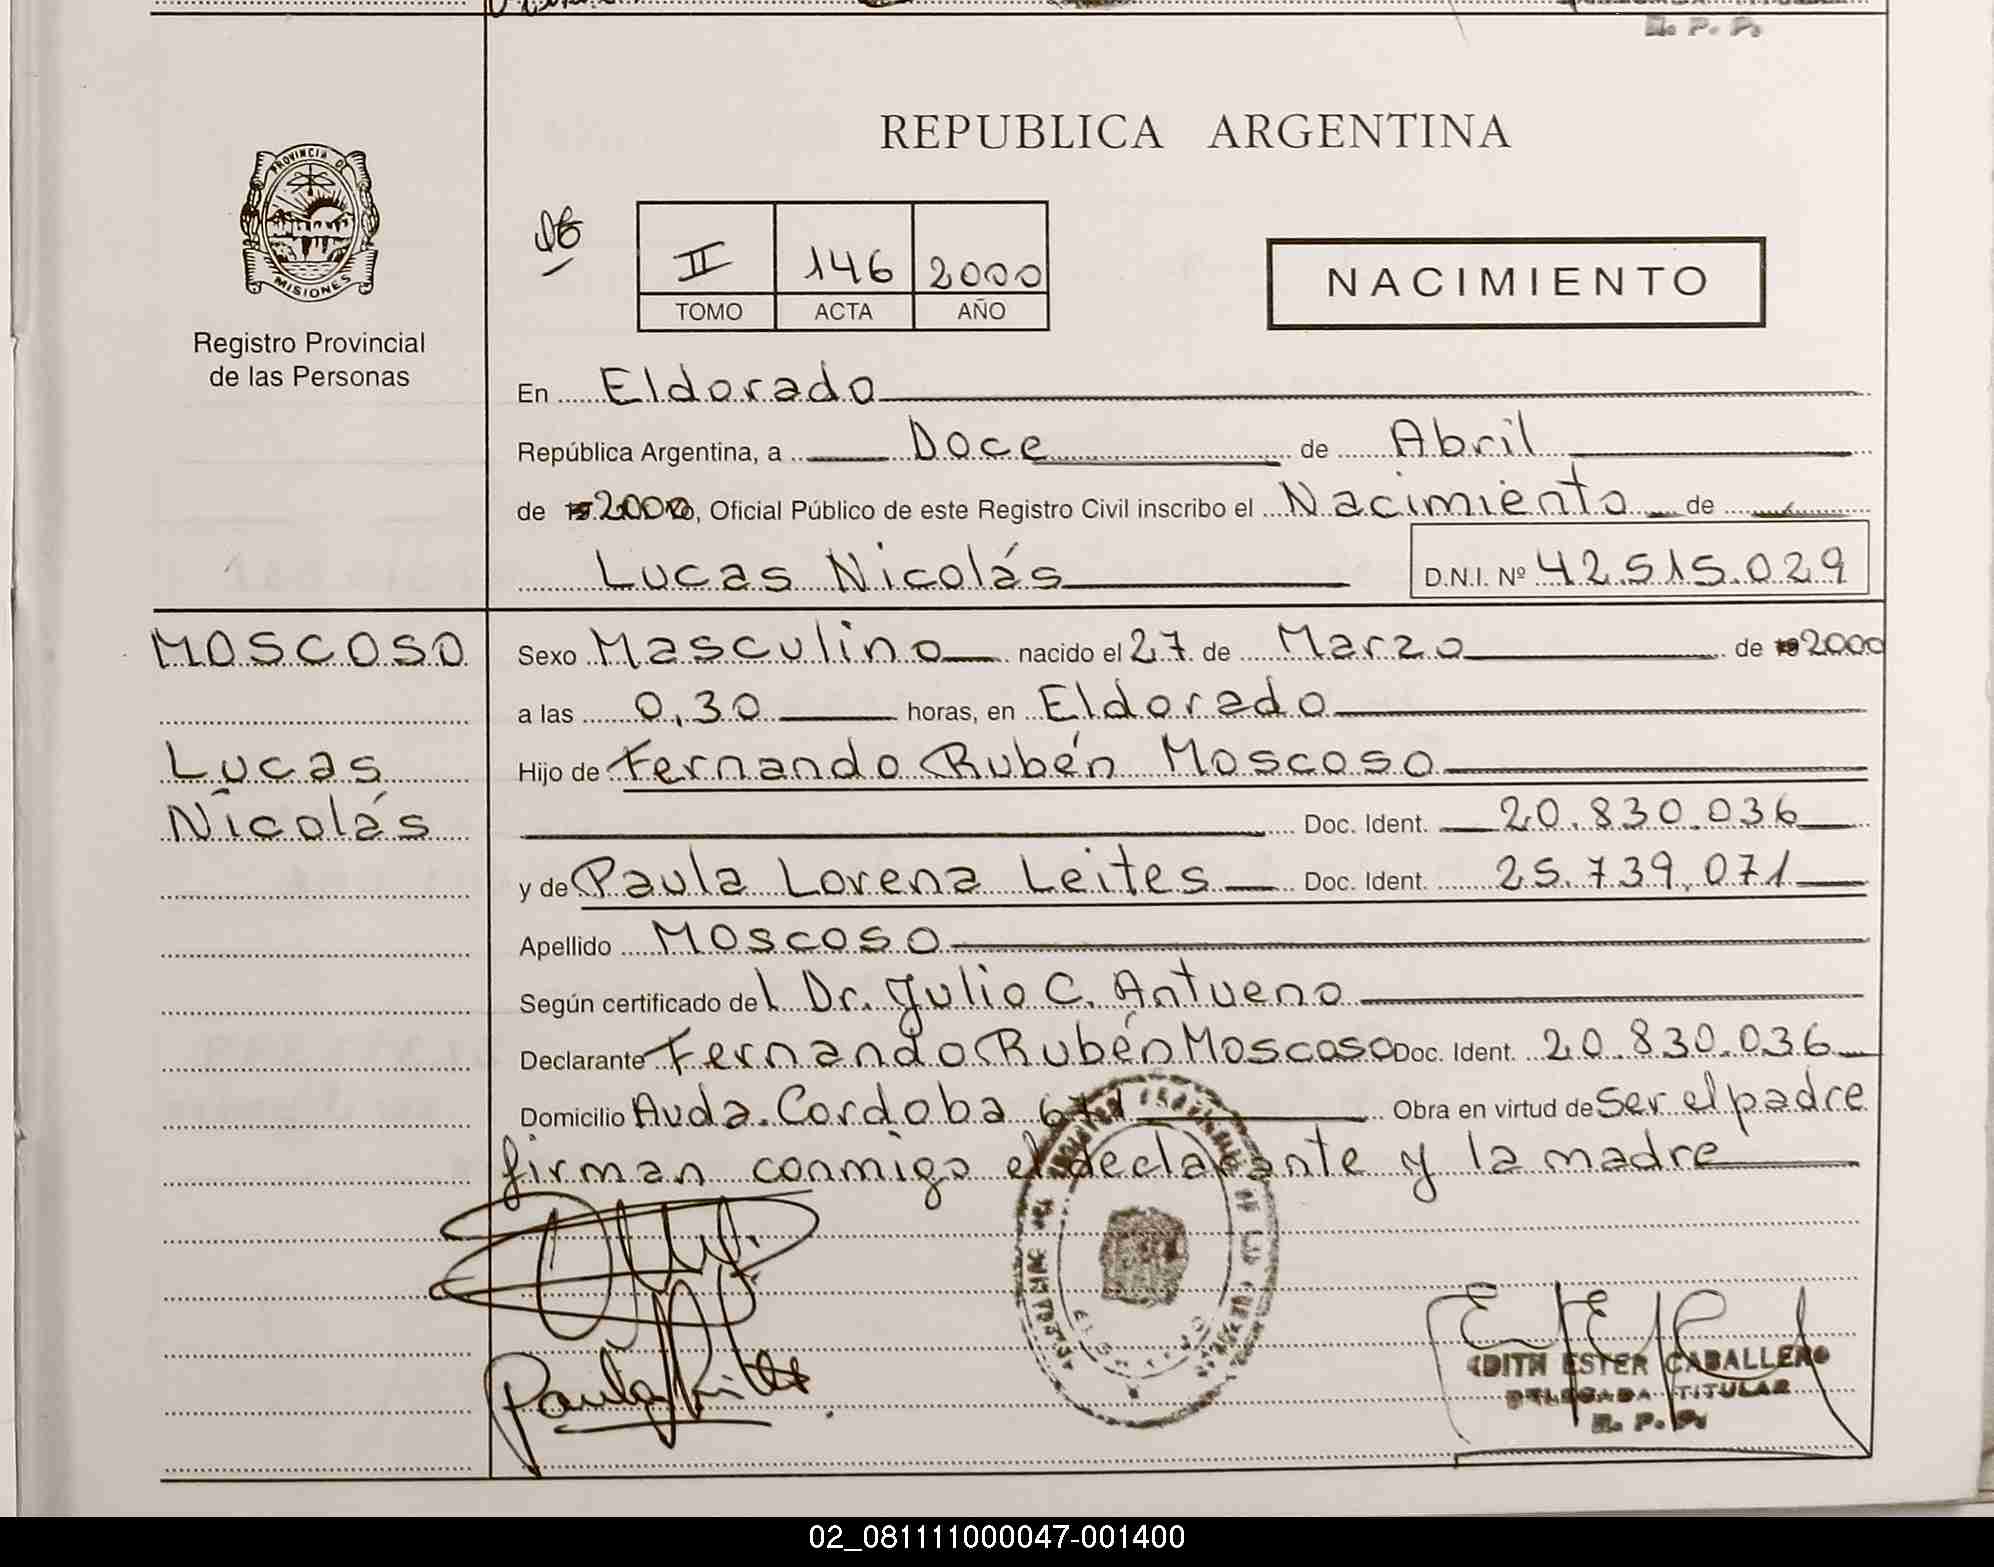 R. P. P.
PROVINCIA DE
MISIONES
Registro Provincial
de las Personas
REPUBLICA ARGENTINA
II 146 2000
TOMO ACTA AÑO
NACIMIENTO
En Eldorado
República Argentina, a Doce de Abril
de 2000, Oficial Público de este Registro Civil inscribo el Nacimiento de
Lucas Nicolás D.N.I. Nº 42.515.029
MOSCOSO
Lucas
Nicolás
Sexo Masculino nacido el 27 de Marzo de 2000
a las 0,30 horas, en Eldorado
Hijo de Fernando Rubén Moscoso
Doc. Ident. 20.830.036
y de Paula Lorena Leites Doc. Ident. 25.739.071
Apellido Moscoso
Según certificado del Dr. Julio C. Antueno
Declarante Fernando Rubén Moscoso Doc. Ident. 20.830.036
Domicilio Avda. Cordoba Obra en virtud de Ser el padre
firman conmigo el declarante y la madre
EDITH ESTER CABALLERO
DELEGADA TITULAR
R. P. P.
02_081111000047-001400